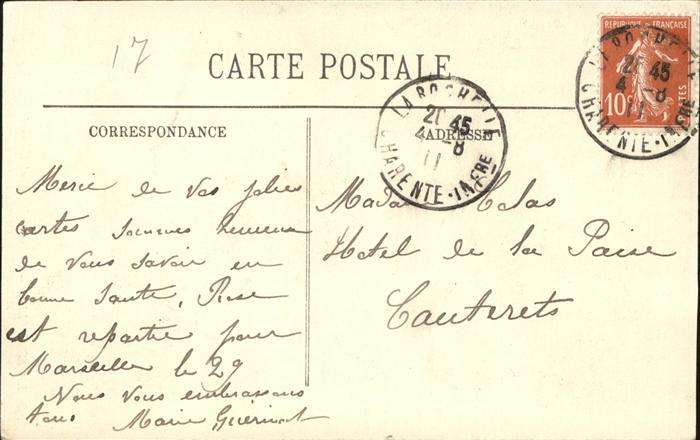 17
CARTE POSTALE
CORRESPONDANCE
ADRESSE
REPUBLIQUE FRANÇAISE
10
LA ROCHELLE
20 45
4 - 8
11
CHARENTE-INFRE
LA ROCHELLE
20 45
4 - 8
11
CHARENTE-INFRE
Merci de vos jolies
cartes sommes heureux
de vous savoir en
bonne santé, Rose
est repartie pour
Marseille le 29
Nous vous embrassons
tous Marie Guerinot
Madame
Hotel de la Paise
Cauterets